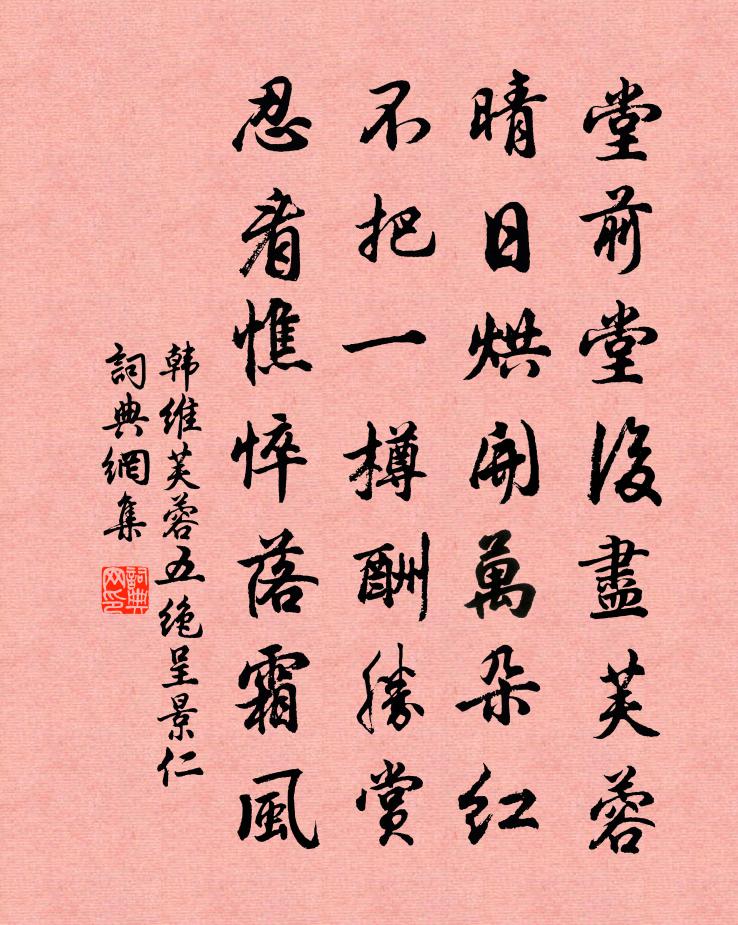 堂前堂後盡芙蓉
晴日烘開萬朵紅
不把一樽酬勝賞
忍看憔悴落霜風
韩维芙蓉五绝呈景仁
詞典網集
詞典网印